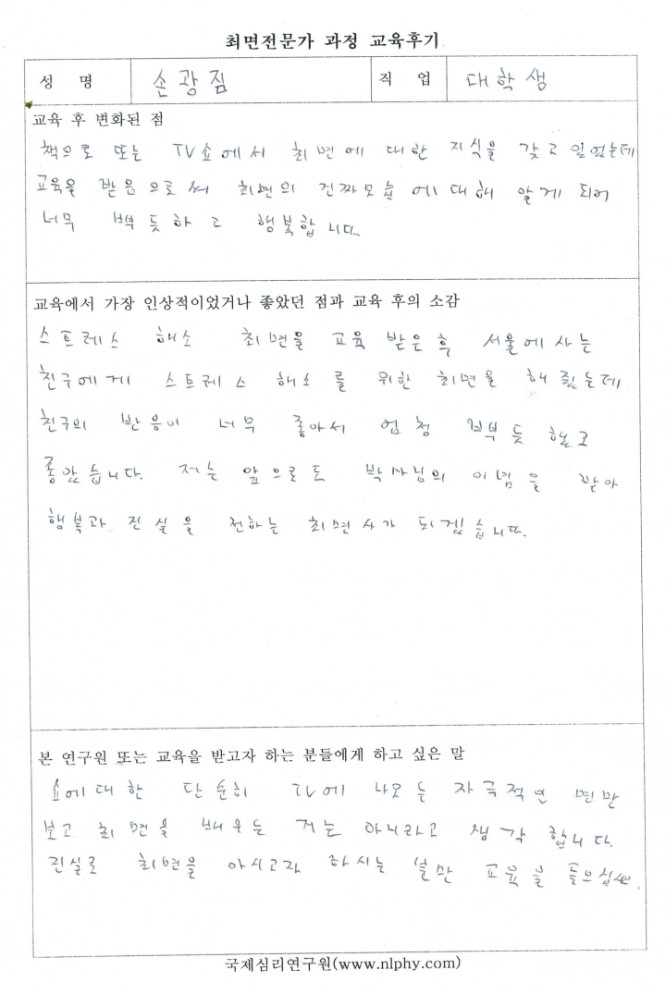 최면전문가 과정 교육후기
성 명 손광짐 직 업 대학생
교육 후 변화된 점
책으로 또는 TV쇼에서 최면에 대한 지식을 갖고 있었는데
교육을 받은으로써 최면의 진짜모습에 대해 알게 되어
너무 뿌듯하고 행복합니다.
교육에서 가장 인상적이었거나 좋았던 점과 교육 후의 소감
스트레스 해소 최면을 교육 받은후 서울에 사는
친구에게 스트레스 해소를 위한 최면을 해줬는데
친구의 반응이 너무 좋아서 엄청 뿌듯했고
좋았습니다. 저는 앞으로도 박사님의 이념을 받아
행복과 진실을 전하는 최면사가 되겠습니다.
본 연구원 또는 교육을 받고자 하는 분들에게 하고 싶은 말
쇼에대한 단순히 TV에 나오는 자극적인 면만
보고 최면을 배우는 거는 아니라고 생각합니다.
진실로 최면을 아시고자 하시는 분만 교육을
국제심리연구원(www.nlphy.com)